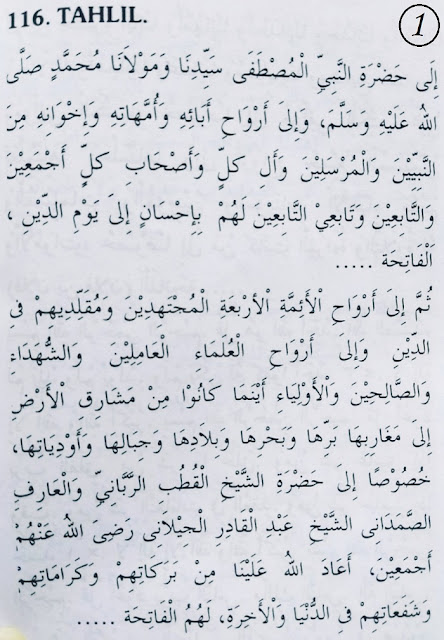 116. TAHLIL.
1
إِلَى حَضْرَةِ النَّبِيِّ الْمُصْطَفَى سَيِّدِنَا وَمَوْلَانَا مُحَمَّدٍ صَلَّى
اللهُ عَلَيْهِ وَسَلَّمَ، وَإِلَى أَرْوَاحِ أَبَائِهِ وَأُمَّهَاتِهِ وَإِخْوَانِهِ مِنَ
النَّبِيِّيْنَ وَالْمُرْسَلِيْنَ وَأَلِ كلٍّ وَأَصْحَاب كلٍّ أَجْمَعِيْنَ
وَالتَّابِعِيْنَ وَتَابِعِي التَّابِعِيْنَ لَهُمْ بِإِحْسَانٍ إِلَى يَوْمِ الدِّيْنِ ،
الْفَاتِحَة .....
ثُمَّ إِلَى أَرْوَاحِ الْأَئِمَّةِ الْأَرْبَعَةِ الْمُجْتَهِدِيْنَ وَمُقَلِّدِيهِمْ فِى
الدِّيْنِ وَإِلَى أَرْوَاحِ الْعُلَمَاءِ الْعَامِلِيْنَ وَالشُّهَدَاءِ
وَالصَّالِحِيْنَ وَالْأَوْلِيَاءِ أَيْنَمَا كَانُوْا مِنْ مَشَارِقِ الْأَرْضِ
إِلَى مَغَارِبِهَا بَرِّهَا وَبَحْرِهَا وَبِلَادِهَا وَجِبَالِهَا وَأَوْدِيَاتِهَا،
خُصُوْصًا إِلَى حَضْرَةِ الشَّيْخِ الْقُطُبِ الرَّبَّانِيِّ وَالْعَارِفِ
الصَّمَدَانِى الشَّيْخِ عَبْدِ الْقَادِرِ الْجِيْلَانِى رَضِىَ اللهُ عَنْهُمْ
أَجْمَعِيْنَ، أَعَادَ اللهُ عَلَيْنَا مِنْ بَرَكَاتِهِمْ وَكَرَامَاتِهِمْ
وَشَفَعَاتِهِمْ فِى الدُّنْيَا وَالْأَخِرَةِ، لَهُمُ الْفَاتِحَة .....